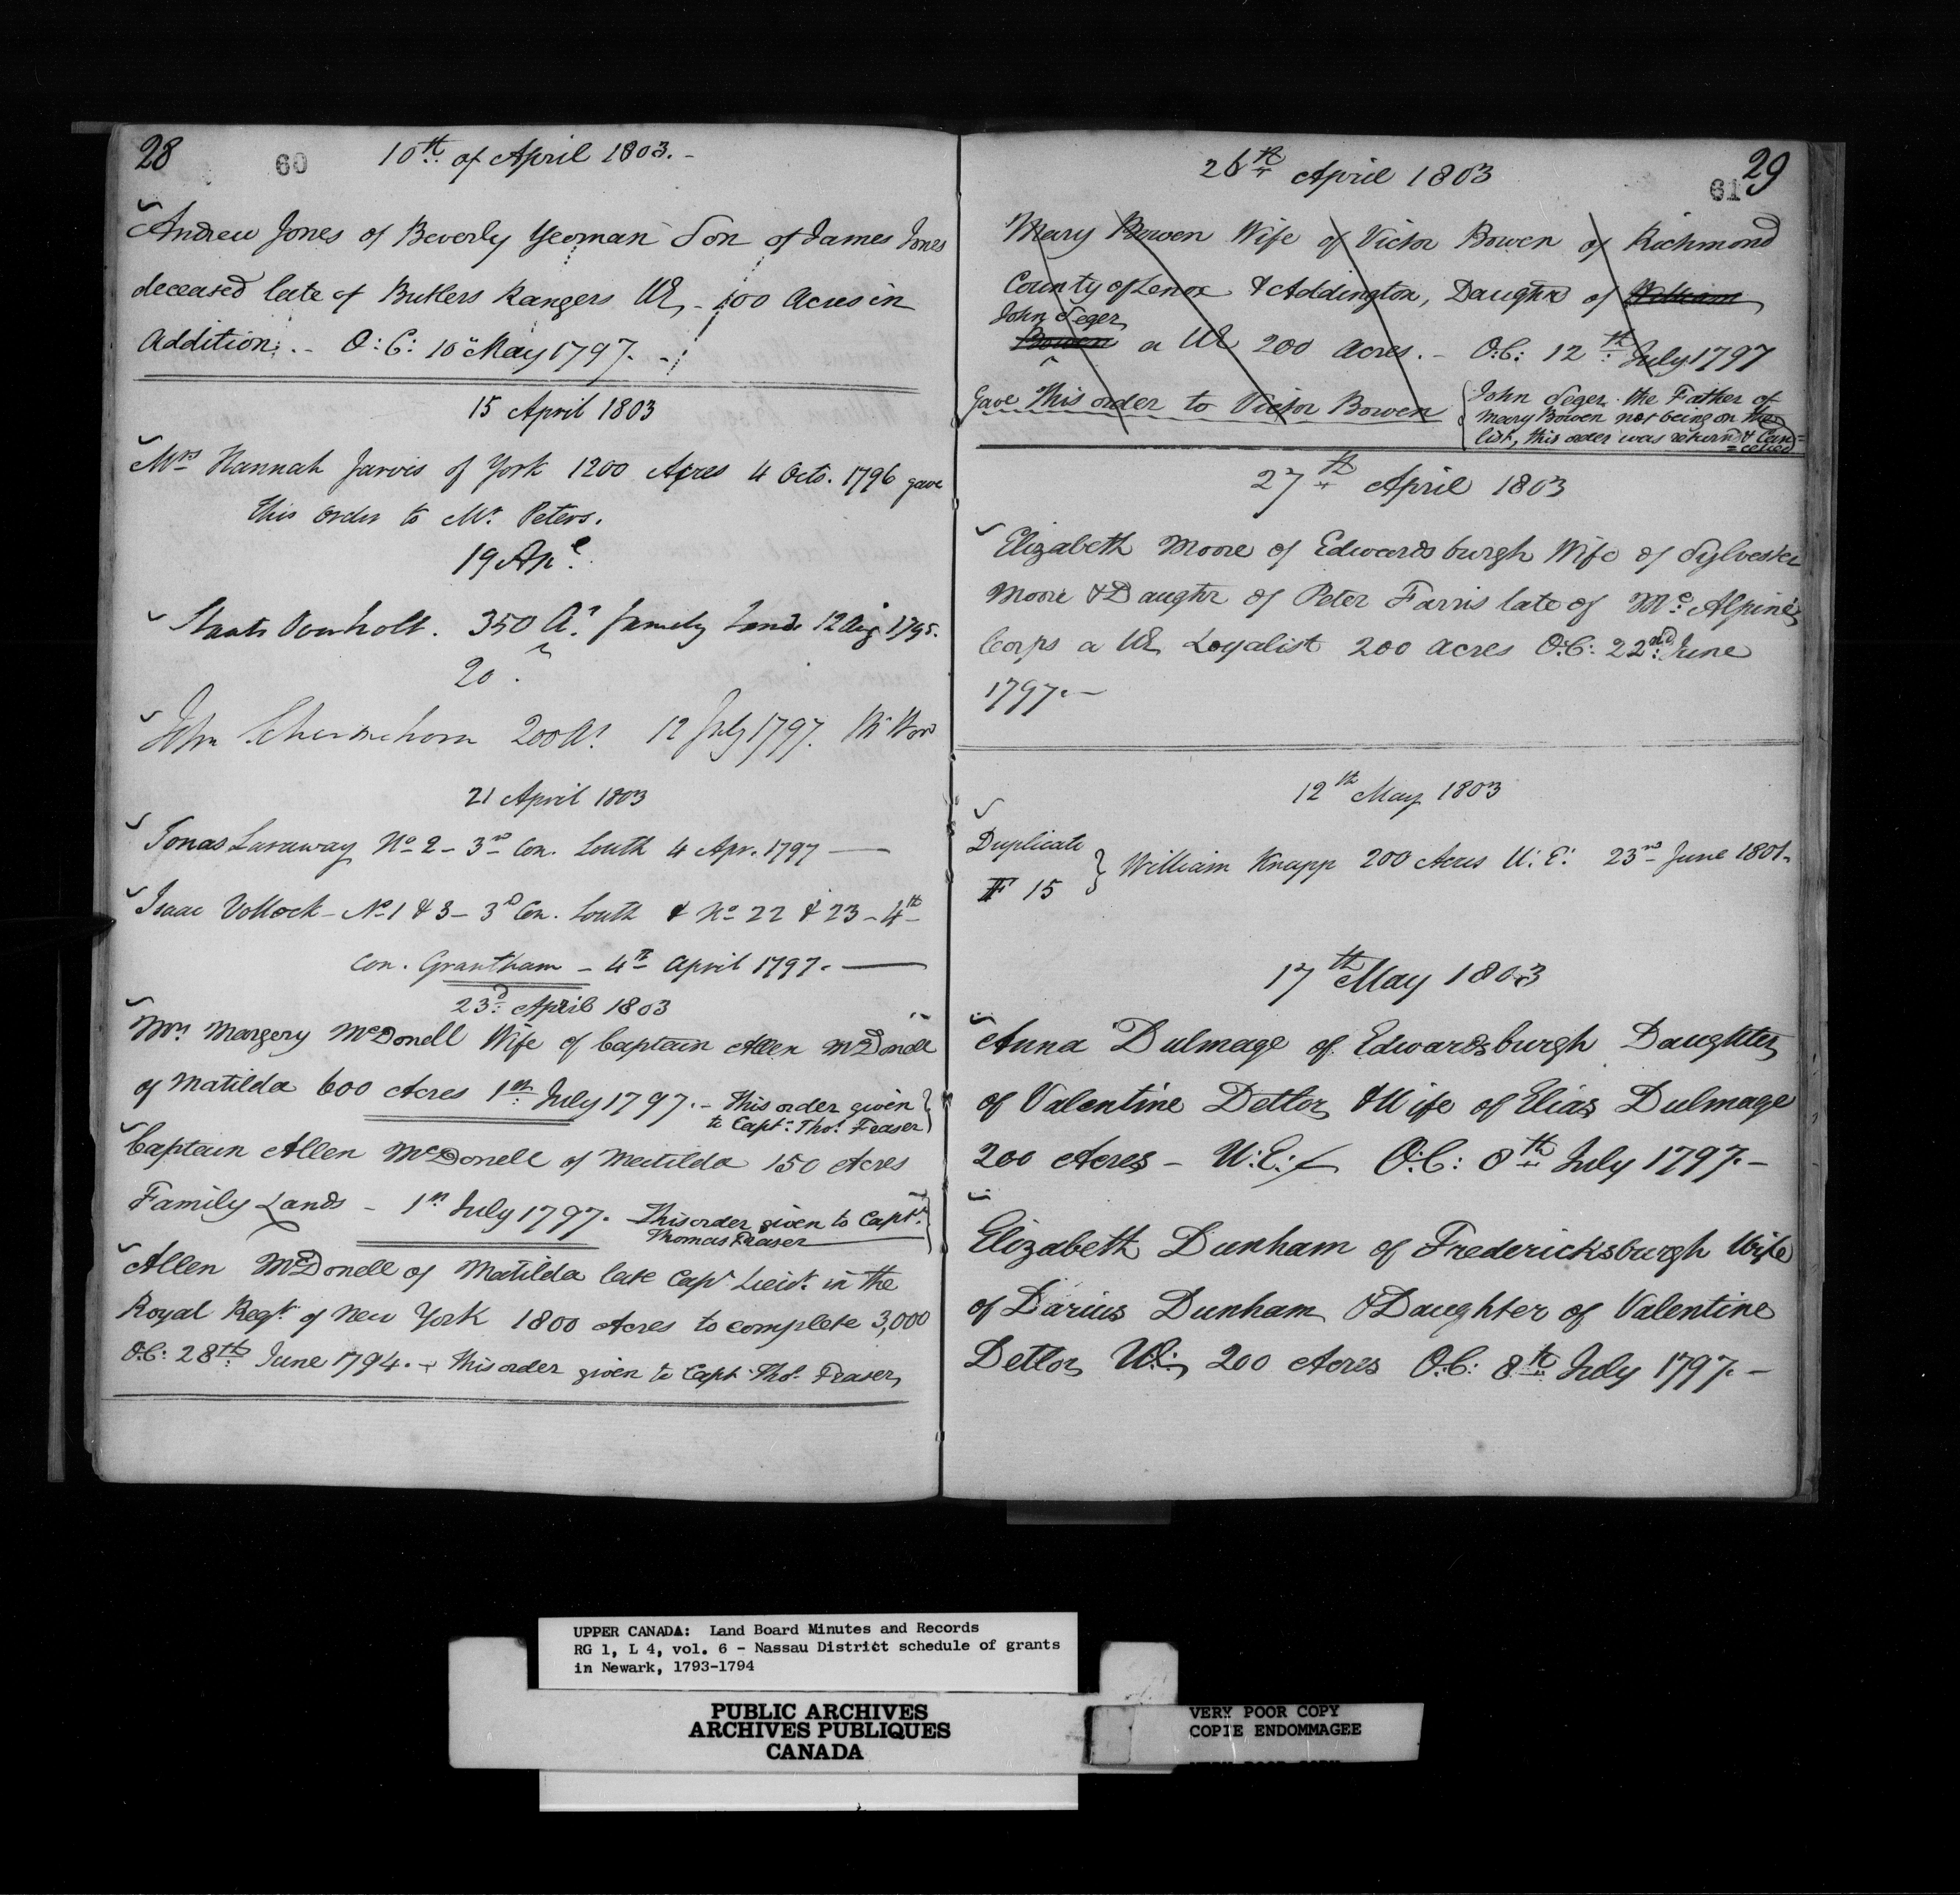 28
60
10th of April 1803.-
Andrew Jones of Beverly Yeoman Son of James Jones
deceased late of Butlers Rangers UE - 100 Acres in
Addition. - O:C: 10 May 1797. -
15 April 1803
Mrs Hannah Jarvis of York 1200 Acres 4 Octo. 1796 gave
this Order to Mr. Peters.
19 Apl.
Staats Overholt. 350 As. family Lands 12 Aug 1795.
20
John Schermehorn 200 As. 12 July 1797.
21 April 1803
Jonas Laraway No 2 - 3rd Con. Louth 4 Apr. 1797 —
Isaac Vollock - No 1 & 3 - 3d Con. Louth & No 22 & 23 - 4th
Con. Grantham - 4th April 1797. —
23d: April 1803
Mrs Margery McDonell Wife of Captain Allen McDonell
of Matilda 600 Acres 1st: July 1797. - This order given
to Capt: Thos. Fraser
Captain Allen McDonell of Matilda 150 Acres
Family Lands - 1st July 1797. This order given to Capt:
Thomas Fraser
Allen McDonell of Matilda late Capt Lieut. in the
Royal Regt. of New York 1800 Acres to complete 3,000
O:C: 28th: June 1794. - This order given to Capt. Thos. Fraser
29
61
26th April 1803
Mary Bowen Wife of Victor Bowen of Richmond
County of Lenox & Addington, Daughtr of William
John Seger
Bowen a UE 200 Acres. - O:C: 12th: July 1797
Gave this order to Victor Bowen
John Seger the Father of
Mary Bowen not being on the
list, this order was returnd & Can=
=celled
27th April 1803
Elizabeth Moore of Edwardsburgh Wife of Sylvester
Moore & Daughtr of Peter Farris late of Mc: Alpine's
Corps a UE Loyalist 200 acres O:C: 22nd: June
1797. -
12th May 1803
Duplicate
F 15
William Knapp 200 Acres U: E: 23rd June 1801.
17th May 1803
Anna Dulmage of Edwardsburgh Daughter
of Valentine Detlor & Wife of Elias Dulmage
200 Acres - U:E: O:C: 8th July 1797. -
Elizabeth Dunham of Fredericksburgh Wife
of Darius Dunham & Daughter of Valentine
Detlor U.E. 200 Acres O:C: 8th July 1797. -
UPPER CANADA: Land Board Minutes and Records
RG 1, L 4, vol. 6 - Nassau District schedule of grants
in Newark, 1793-1794
PUBLIC ARCHIVES
ARCHIVES PUBLIQUES
CANADA
VERY POOR COPY
COPIE ENDOMMAGEE
VERY POOR COPY